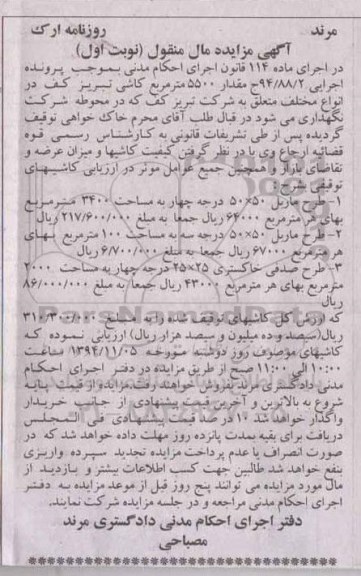 مرند روزنامه ارک
آگهی مزایده مال منقول (نوبت اول)
در اجرای ماده ۱۱۴ قانون اجرای احکام مدنی بموجب پرونده
اجرایی ۹۴/۸۸/۲ح مقدار ۵۵۰۰ مترمربع کاشی تبریز کف در
انواع مختلف متعلق به شرکت تبریز کف که در محوطه شرکت
نگهداری می شود در قبال طلب آقای محرم خاک خواهی توقیف
گردیده پس از طی تشریفات قانونی به کارشناس رسمی قوه
قضائیه ارجاع وی با در نظر گرفتن کیفیت کاشیها و میزان عرضه و
تقاضای بازار و همچنین جمیع عوامل موثر در ارزیابی کاشیهای
توقیفی بشرح:
۱- طرح ماربل ۵۰×۵۰ درجه چهار به مساحت ۳۴۰۰ مترمربع
بهای هر مترمربع ۶۴۰۰۰ ریال جمعا به مبلغ ۲۱۷/۶۰۰/۰۰۰ ریال
۲- طرح ماربل ۵۰×۵۰ درجه سه به مساحت ۱۰۰ مترمربع بهای
هر مترمربع ۶۷۰۰۰ ریال جمعا به مبلغ ۶/۷۰۰/۰۰۰ ریال
۳- طرح صدفی خاکستری ۲۵×۲۵ درجه چهار به مساحت ۲۰۰۰
مترمربع بهای هر مترمربع ۴۳۰۰۰ ریال جمعا به مبلغ ۸۶/۰۰۰/۰۰۰
ریال
که ارزش کل کاشیهای توقیف شده را به مبلغ ۳۱۰/۳۰۰/۰۰۰
ریال(سیصد و ده میلیون و سیصد هزار ریال) ارزیابی نموده که
کاشیهای موصوف روز دوشنبه مورخه ۱۳۹۴/۱۱/۰۵ ساعت
۱۰:۰۰ الی ۱۱:۰۰ صبح از طریق مزایده در دفتر اجرای احکام
مدنی دادگستری مرند بفروش خواهند رفت مزایده از قیمت پایه
شروع به بالاترین و آخرین قیمت پیشنهادی از جانب خریدار
واگذار خواهد شد ۱۰ درصد قیمت پیشنهادی فی المجلس
دریافت برای بقیه بمدت پانزده روز مهلت داده خواهد شد که در
صورت انصراف یا عدم پرداخت مزایده تجدید سپرده واریزی
بنفع خواهد شد طالبین جهت کسب اطلاعات بیشتر و بازدید از
مال مورد مزایده می توانند پنج روز قبل از موعد مزایده به دفتر
اجرای احکام مدنی مراجعه و در جلسه مزایده شرکت نمایند.
دفتر اجرای احکام مدنی دادگستری مرند
مصباحی